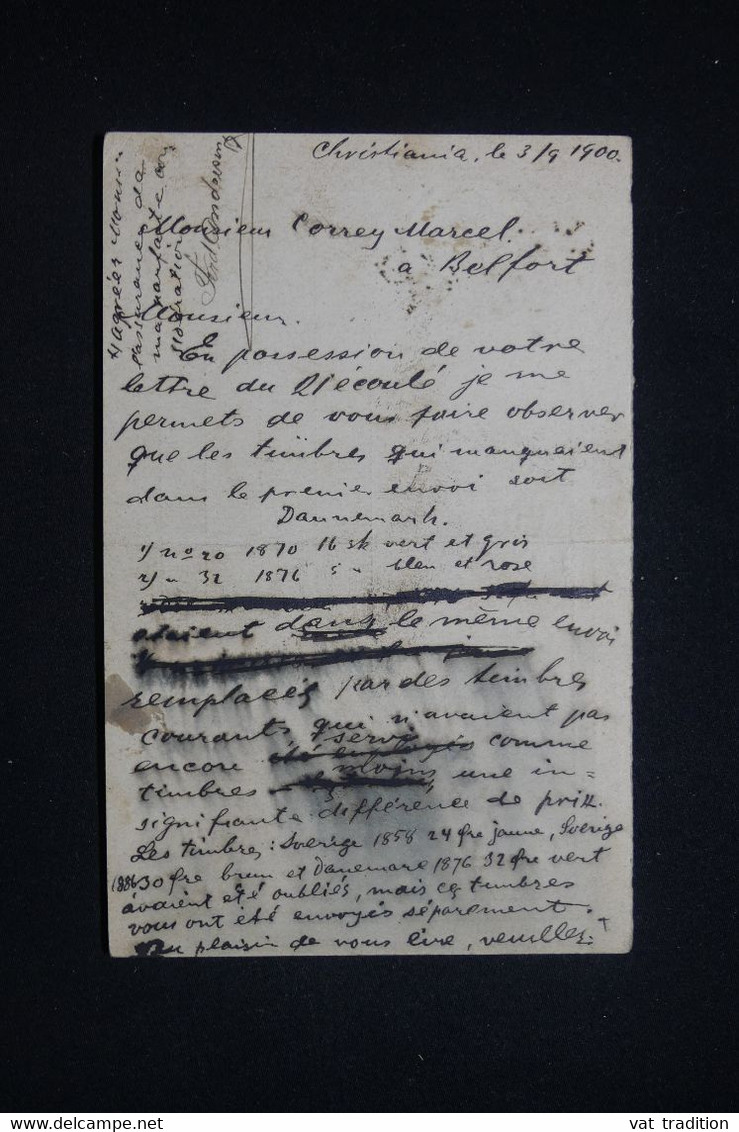 Christiania, le 3/9 1900.
Monsieur Correy Marcel.
a Belfort
Monsieur.
En possession de votre
lettre du 21 écoulé je me
permets de vous faire observer
que les timbres qui manquaient
dans le premier envoi sont
Dannemark.
1/ no 20 1870 16 sk vert et gris
2/ " 32 1876 5 " bleu et rose
étaient dans le même envoi
remplacés par des timbres
courants qui n'avaient pas
encore servi comme
timbres moins une in=
signifiante différence de prix.
Les timbres: Sverige 1858 24 øre jaune, Sverige
1886 30 øre brun et Danemarc 1876 32 øre vert
avaient été oubliés, mais ces timbres
vous ont été envoyés séparement.
Au plaisir de vous lire, veuillez +
+) agréer Monsieur
l'assurance de
ma parfaite con
sideration
Andresen
vat tradition